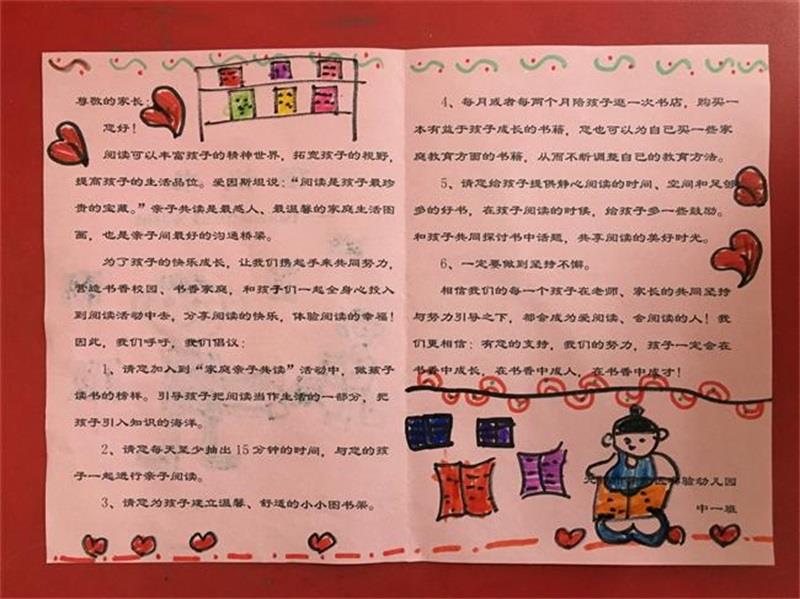 尊敬的家长：
您好！
阅读可以丰富孩子的精神世界，拓宽孩子的视野，
提高孩子的生活品位。爱因斯坦说：“阅读是孩子最珍
贵的宝藏。”亲子共读是最感人、最温馨的家庭生活图
画，也是亲子间最好的沟通桥梁。
为了孩子的快乐成长，让我们携起手来共同努力，
营造书香校园、书香家庭，和孩子们一起全身心投入
到阅读活动中去，分享阅读的快乐，体验阅读的幸福！
因此，我们呼吁，我们倡议：
1、请您加入到“家庭亲子共读”活动中，做孩子
读书的榜样。引导孩子把阅读当作生活的一部分，把
孩子引入知识的海洋。
2、请您每天至少抽出 15 分钟的时间，与您的孩
子一起进行亲子阅读。
3、请您为孩子建立温馨、舒适的小小图书架。
4、每月或者每两个月陪孩子逛一次书店，购买一
本有益于孩子成长的书籍，您也可以为自己买一些家
庭教育方面的书籍，从而不断调整自己的教育方法。
5、请您给孩子提供静心阅读的时间、空间和足够
多的好书，在孩子阅读的时候，给孩子多一些鼓励。
和孩子共同探讨书中话题，共享阅读的美好时光。
6、一定要做到坚持不懈。
相信我们的每一个孩子在老师、家长的共同坚持
与努力引导之下，都会成为爱阅读、会阅读的人！我
们更相信：有您的支持，我们的努力，孩子一定会在
书香中成长，在书香中成人，在书香中成才！
验幼儿园
中一班